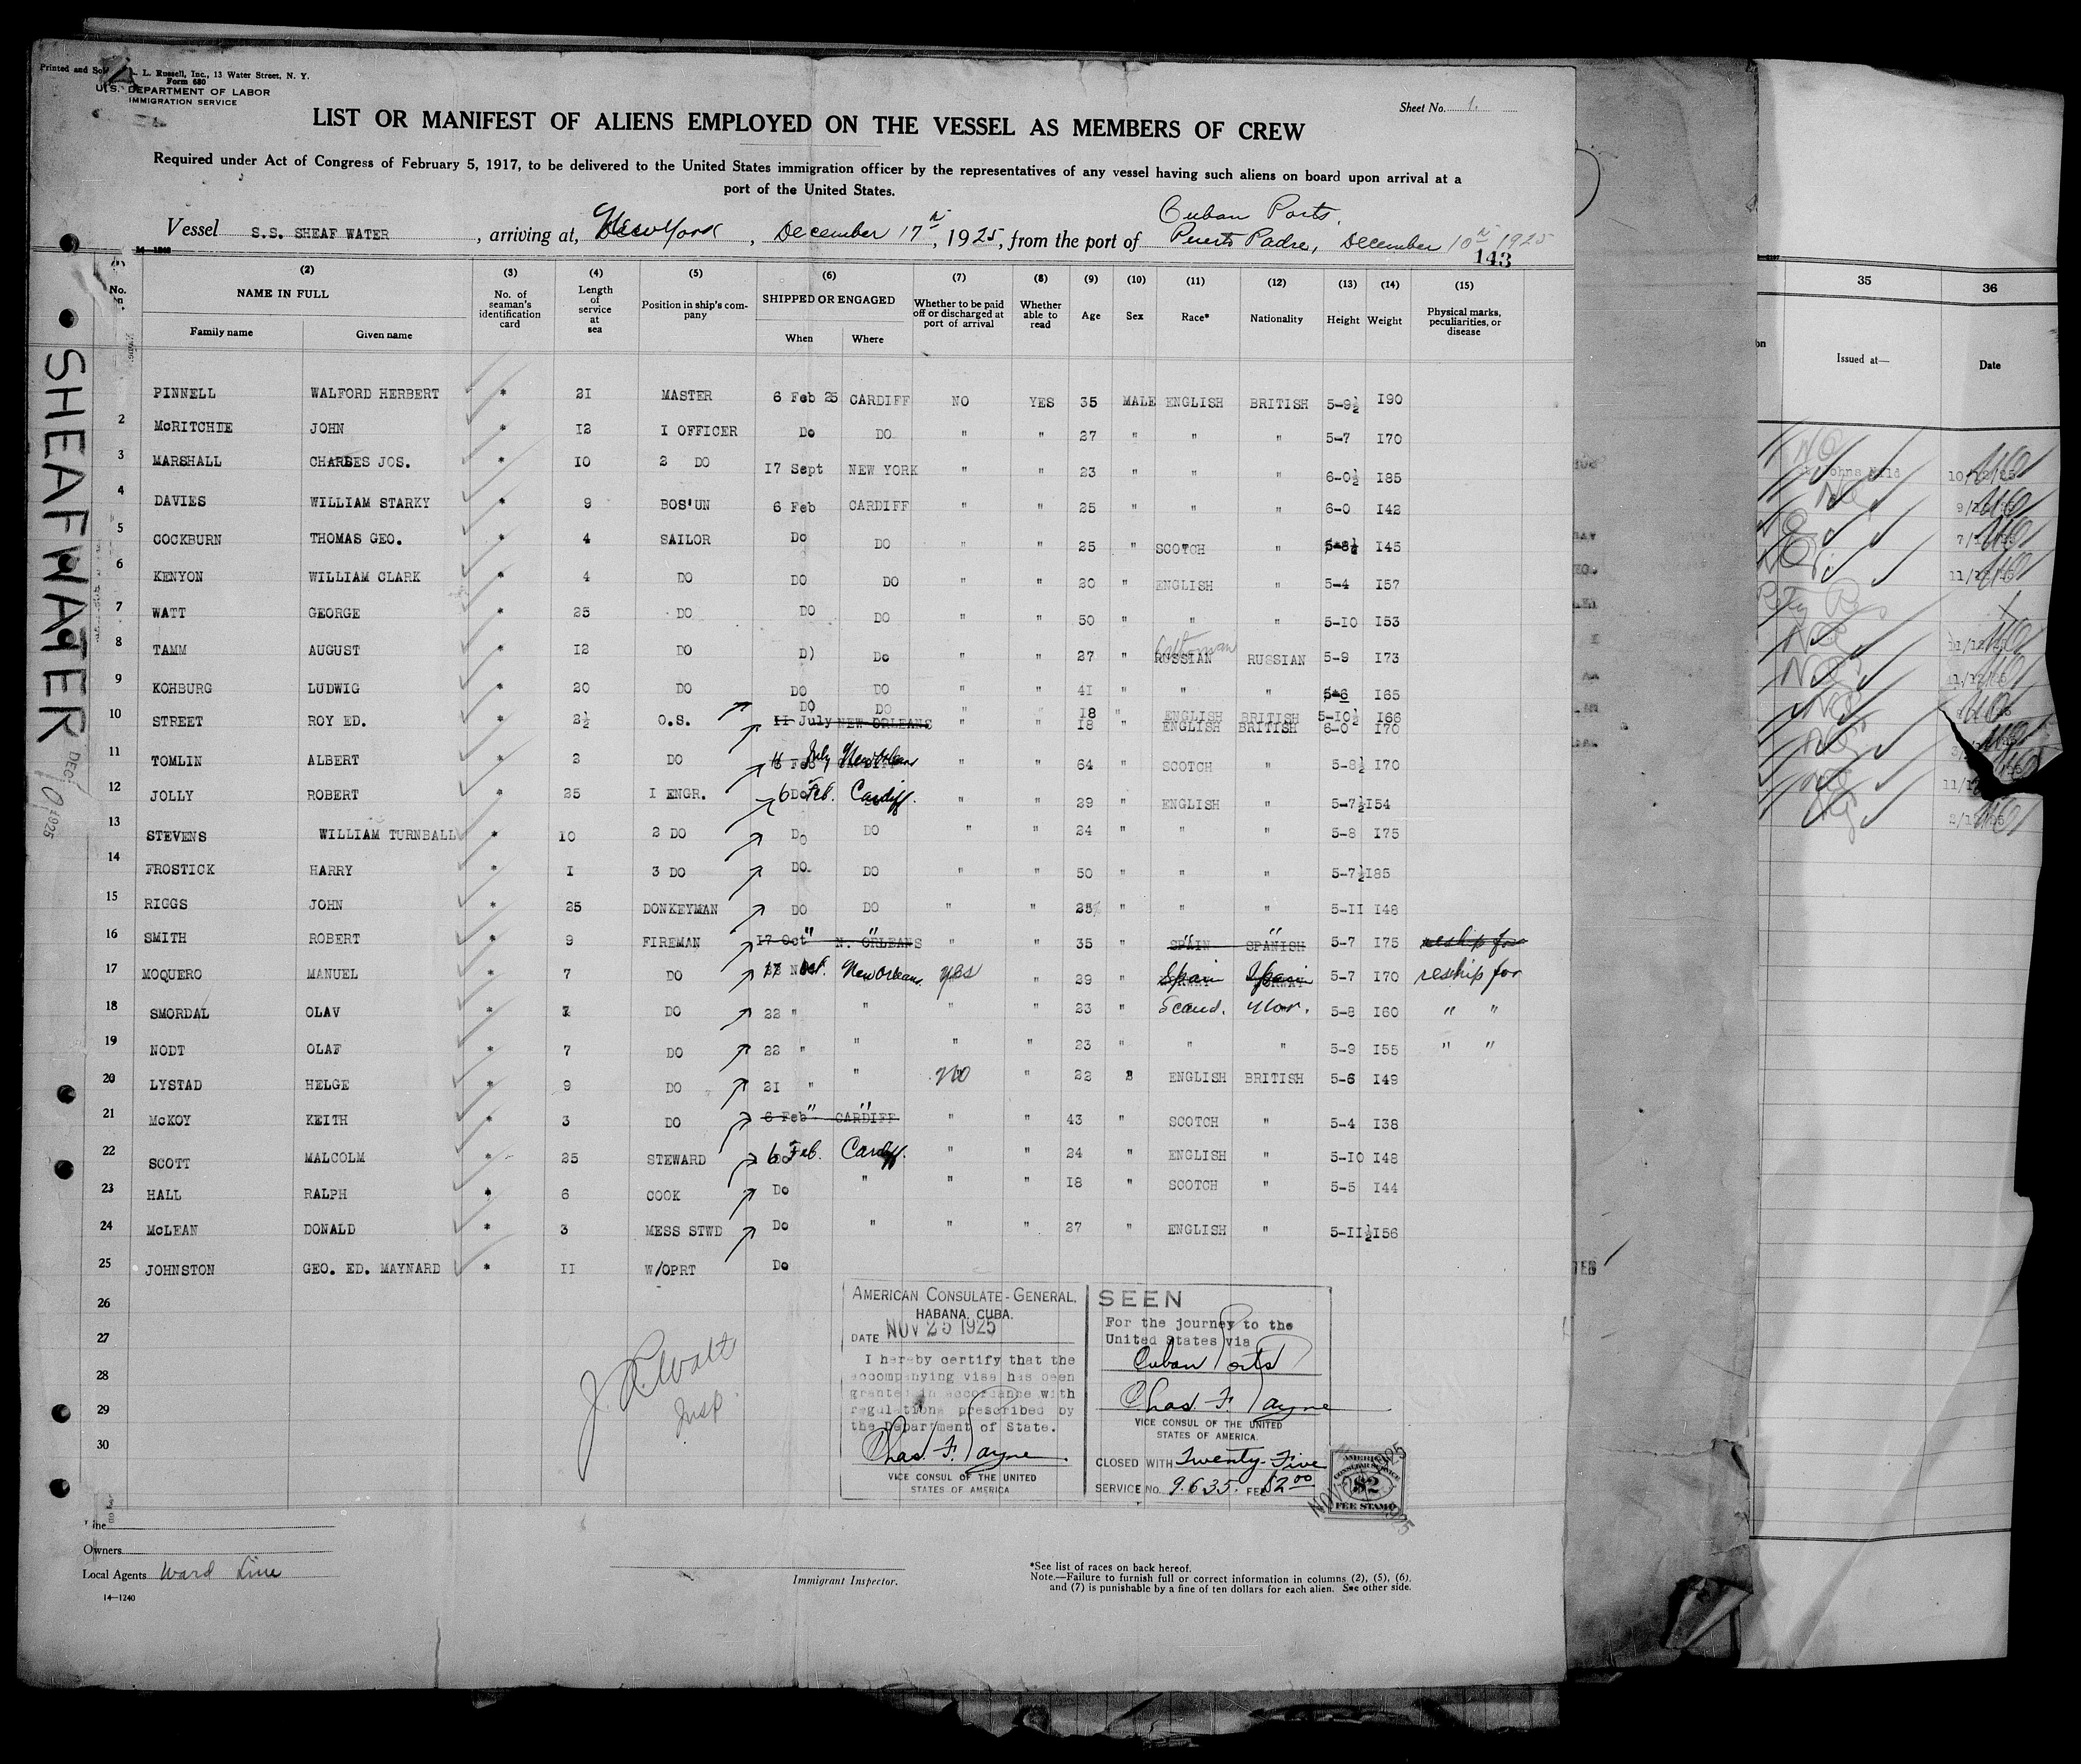 Printed and Sold L. L. Russell, Inc., 13 Water Street, N. Y.
Form 680
U. S. DEPARTMENT OF LABOR
IMMIGRATION SERVICE
Sheet No. 1.
LIST OR MANIFEST OF ALIENS EMPLOYED ON THE VESSEL AS MEMBERS OF CREW
Required under Act of Congress of February 5, 1917, to be delivered to the United States immigration officer by the representatives of any vessel having such aliens on board upon arrival at a
port of the United States.
Cuban Ports,
Vessel S.S. SHEAF WATER, arriving at, New York, December 17th, 1925, from the port of Puerto Padre, December 10th 1925
14—1240
143
(2) (3) (4) (5) (6) (7) (8) (9) (10) (11) (12) (13) (14) (15)
No. NAME IN FULL No. of seaman's identification card Length of service at sea Position in ship's company SHIPPED OR ENGAGED Whether to be paid off or discharged at port of arrival Whether able to read Age Sex Race* Nationality Height Weight Physical marks, peculiarities, or disease
Family name Given name When Where
PINNELL WALFORD HERBERT * 21 MASTER 6 Feb 25 CARDIFF NO YES 35 MALE ENGLISH BRITISH 5-9½ 190
2 McRITCHIE JOHN * 12 I OFFICER Do DO " " 27 " " " 5-7 170
3 MARSHALL CHARLES JOS. * 10 2 DO 17 Sept NEW YORK " " 23 " " " 6-0½ 185
4 DAVIES WILLIAM STARKY * 9 BOS'UN 6 Feb CARDIFF " " 25 " " " 6-0 142
5 COCKBURN THOMAS GEO. * 4 SAILOR Do DO " " 25 " SCOTCH " 5-8½ 145
6 KENYON WILLIAM CLARK * 4 DO DO DO " " 20 " ENGLISH " 5-4 157
7 WATT GEORGE * 25 DO DO DO " " 50 " " " 5-10 153
8 TAMM AUGUST * 12 DO D) Do " " 27 " RUSSIAN RUSSIAN 5-9 173
9 KOHBURG LUDWIG * 20 DO DO DO " " 41 " " " 5-6 165
DO DO 18 " ENGLISH BRITISH 5-10½ 166
10 STREET ROY ED. * 2½ O.S. II July NEW ORLEANS " " 18 ENGLISH BRITISH 6-0 170
11 TOMLIN ALBERT * 2 DO July New Orleans " " 64 " SCOTCH " 5-8½ 170
12 JOLLY ROBERT * 25 I ENGR. 6 Feb. Cardiff. " " 29 " ENGLISH " 5-7½ 154
13 STEVENS WILLIAM TURNBALL * 10 2 DO Do DO " " 24 " " " 5-8 175
14 FROSTICK HARRY * I 3 DO DO DO " " 50 " " " 5-7½ 185
15 RIGGS JOHN * 25 DONKEYMAN DO DO " " 25 " " " 5-11 148
16 SMITH ROBERT * 9 FIREMAN 17 Oct " N. ORLEANS " " " 35 " SPAIN " SPANISH " 5-7 175 reship for
17 MOQUERO MANUEL * 7 DO 17 Oct. New Orleans yes " 29 " Spain Spain 5-7 170 reship for
18 SMORDAL OLAV * DO 22 " " " " 23 " Scand. Nor. 5-8 160 " "
19 NODT OLAF * 7 DO 22 " " " " 23 " " " 5-9 155 " "
20 LYSTAD HELGE * 9 DO 21 " " No " 22 ENGLISH BRITISH 5-6 149
21 McKOY KEITH * 3 DO 6 Feb " CARDIFF " " " 43 " SCOTCH " 5-4 138
22 SCOTT MALCOLM * 25 STEWARD 6 Feb. Cardiff. " " 24 " ENGLISH " 5-10 148
23 HALL RALPH * 6 COOK Do " " " 18 " SCOTCH " 5-5 144
24 McLEAN DONALD * 3 MESS STWD Do " " " 27 " ENGLISH " 5-11½ 156
25 JOHNSTON GEO. ED. MAYNARD * II W/OPRT Do
26
27
28
29
30
SHEAF WATER
DEC 1925
J. R. Watt
Insp.
AMERICAN CONSULATE-GENERAL,
HABANA, CUBA.
DATE NOV 25 1925
I hereby certify that the
accompanying visa has been
granted in accordance with
regulations prescribed by
the Department of State.
Chas. F. Payne.
VICE CONSUL OF THE UNITED
STATES OF AMERICA
SEEN
For the journey to the
United States via
Cuban Ports
Chas. F. Payne
VICE CONSUL OF THE UNITED
STATES OF AMERICA.
CLOSED WITH Twenty-Five
SERVICE No. 9635. FEE $2.00
AMERICAN
CONSULAR SERVICE
$2
FEE STAMP
Line
Owners
Local Agents Ward Line
14—1240
Immigrant Inspector.
*See list of races on back hereof.
Note.—Failure to furnish full or correct information in columns (2), (5), (6),
and (7) is punishable by a fine of ten dollars for each alien. See other side.
35 36
Issued at— Date